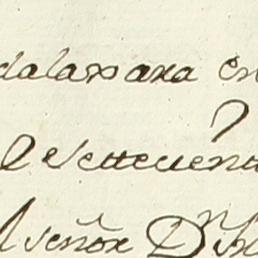 dalaxara en
e Settecient
l señor Dn